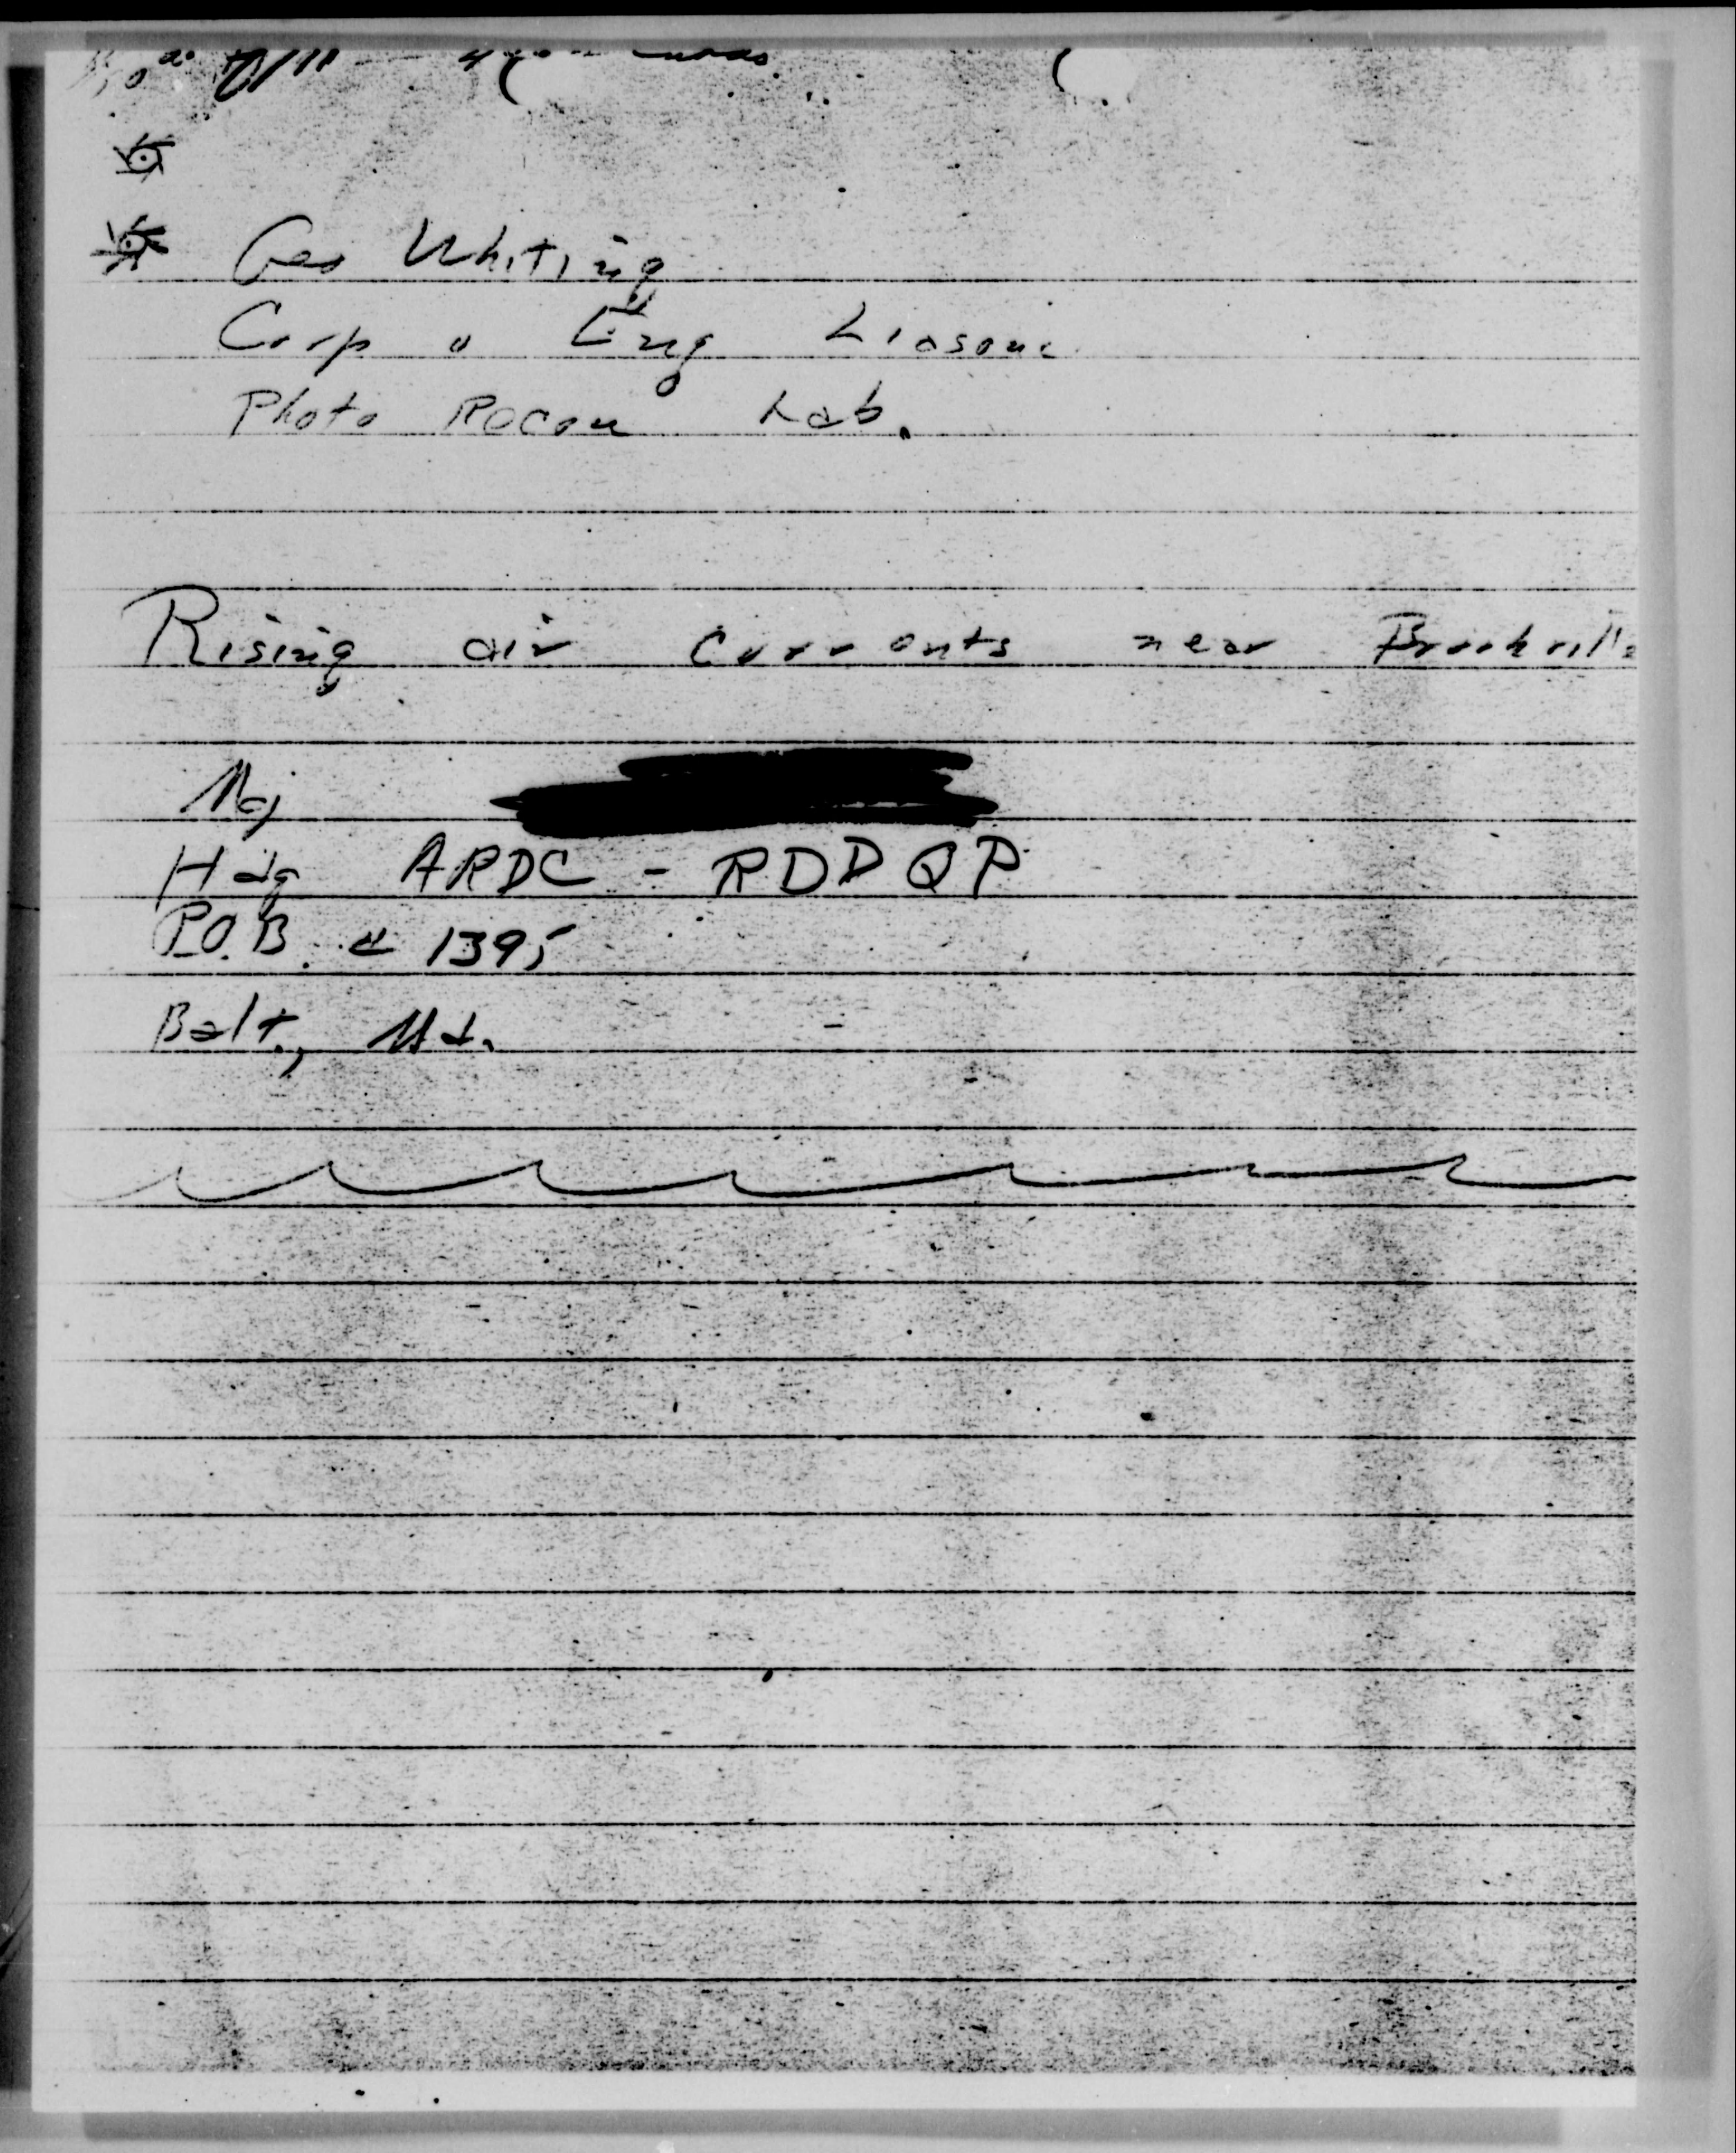 Geo Whiting
Corp o Eng Liason
Photo Recon Lab.
Rising air currents near Brookville
Maj
Hdq ARDC - RDDQP
P.O.B. # 1395
Balt., Md.